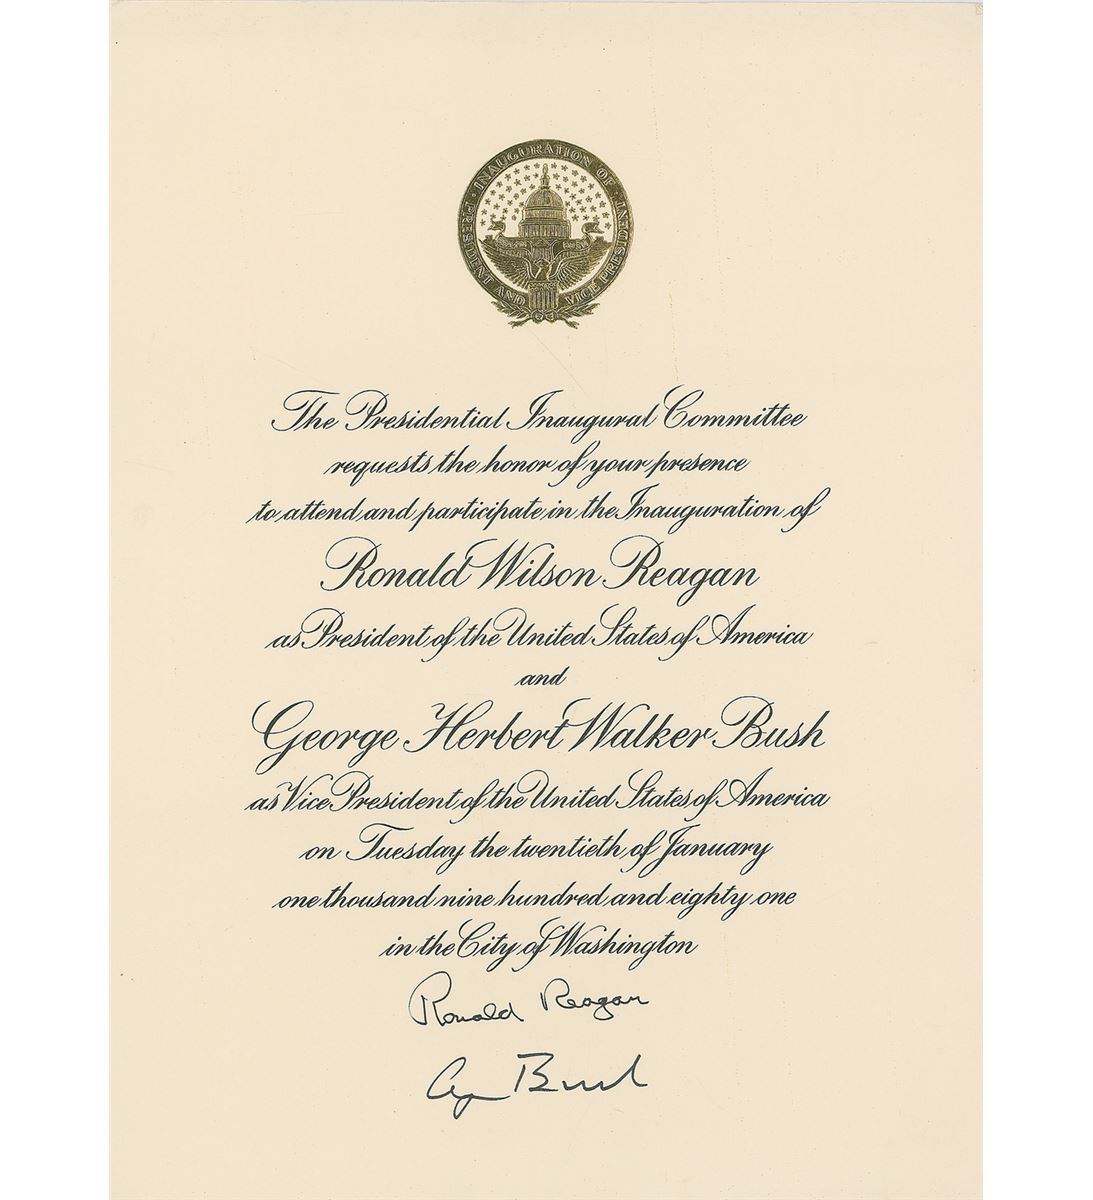 INAUGURATION OF
PRESIDENT AND
VICE PRESIDENT
The Presidential Inaugural Committee
requests the honor of your presence
to attend and participate in the Inauguration of
Ronald Wilson Reagan
as President of the United States of America
and
George Herbert Walker Bush
as Vice President of the United States of America
on Tuesday the twentieth of January
one thousand nine hundred and eighty one
in the City of Washington
Ronald Reagan
Bush